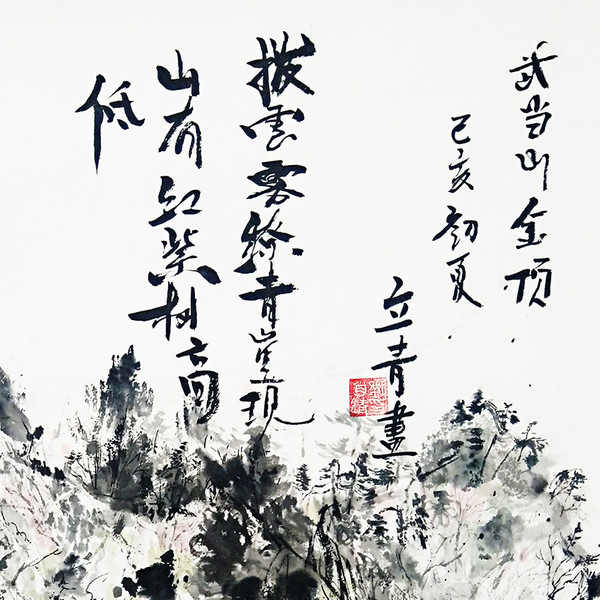 武当山金顶
己亥初夏
立青畫
拨雲雾缭青崖现
山有红紫树高
低